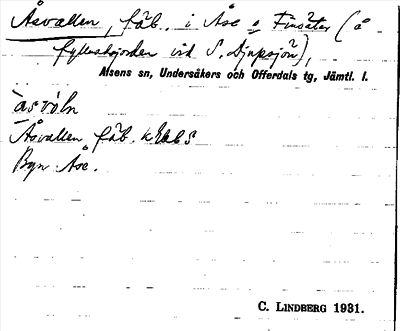 Åsvallen, fäb. i Åse o Finsäter (å
fyllnadsjorden vid S. Djupsjön),
Alsens sn, Undersåkers och Offerdals tg, Jämtl. l.
àsvòln
Åsvallen fäb.
Byn Åse.
C. LINDBERG 1931.